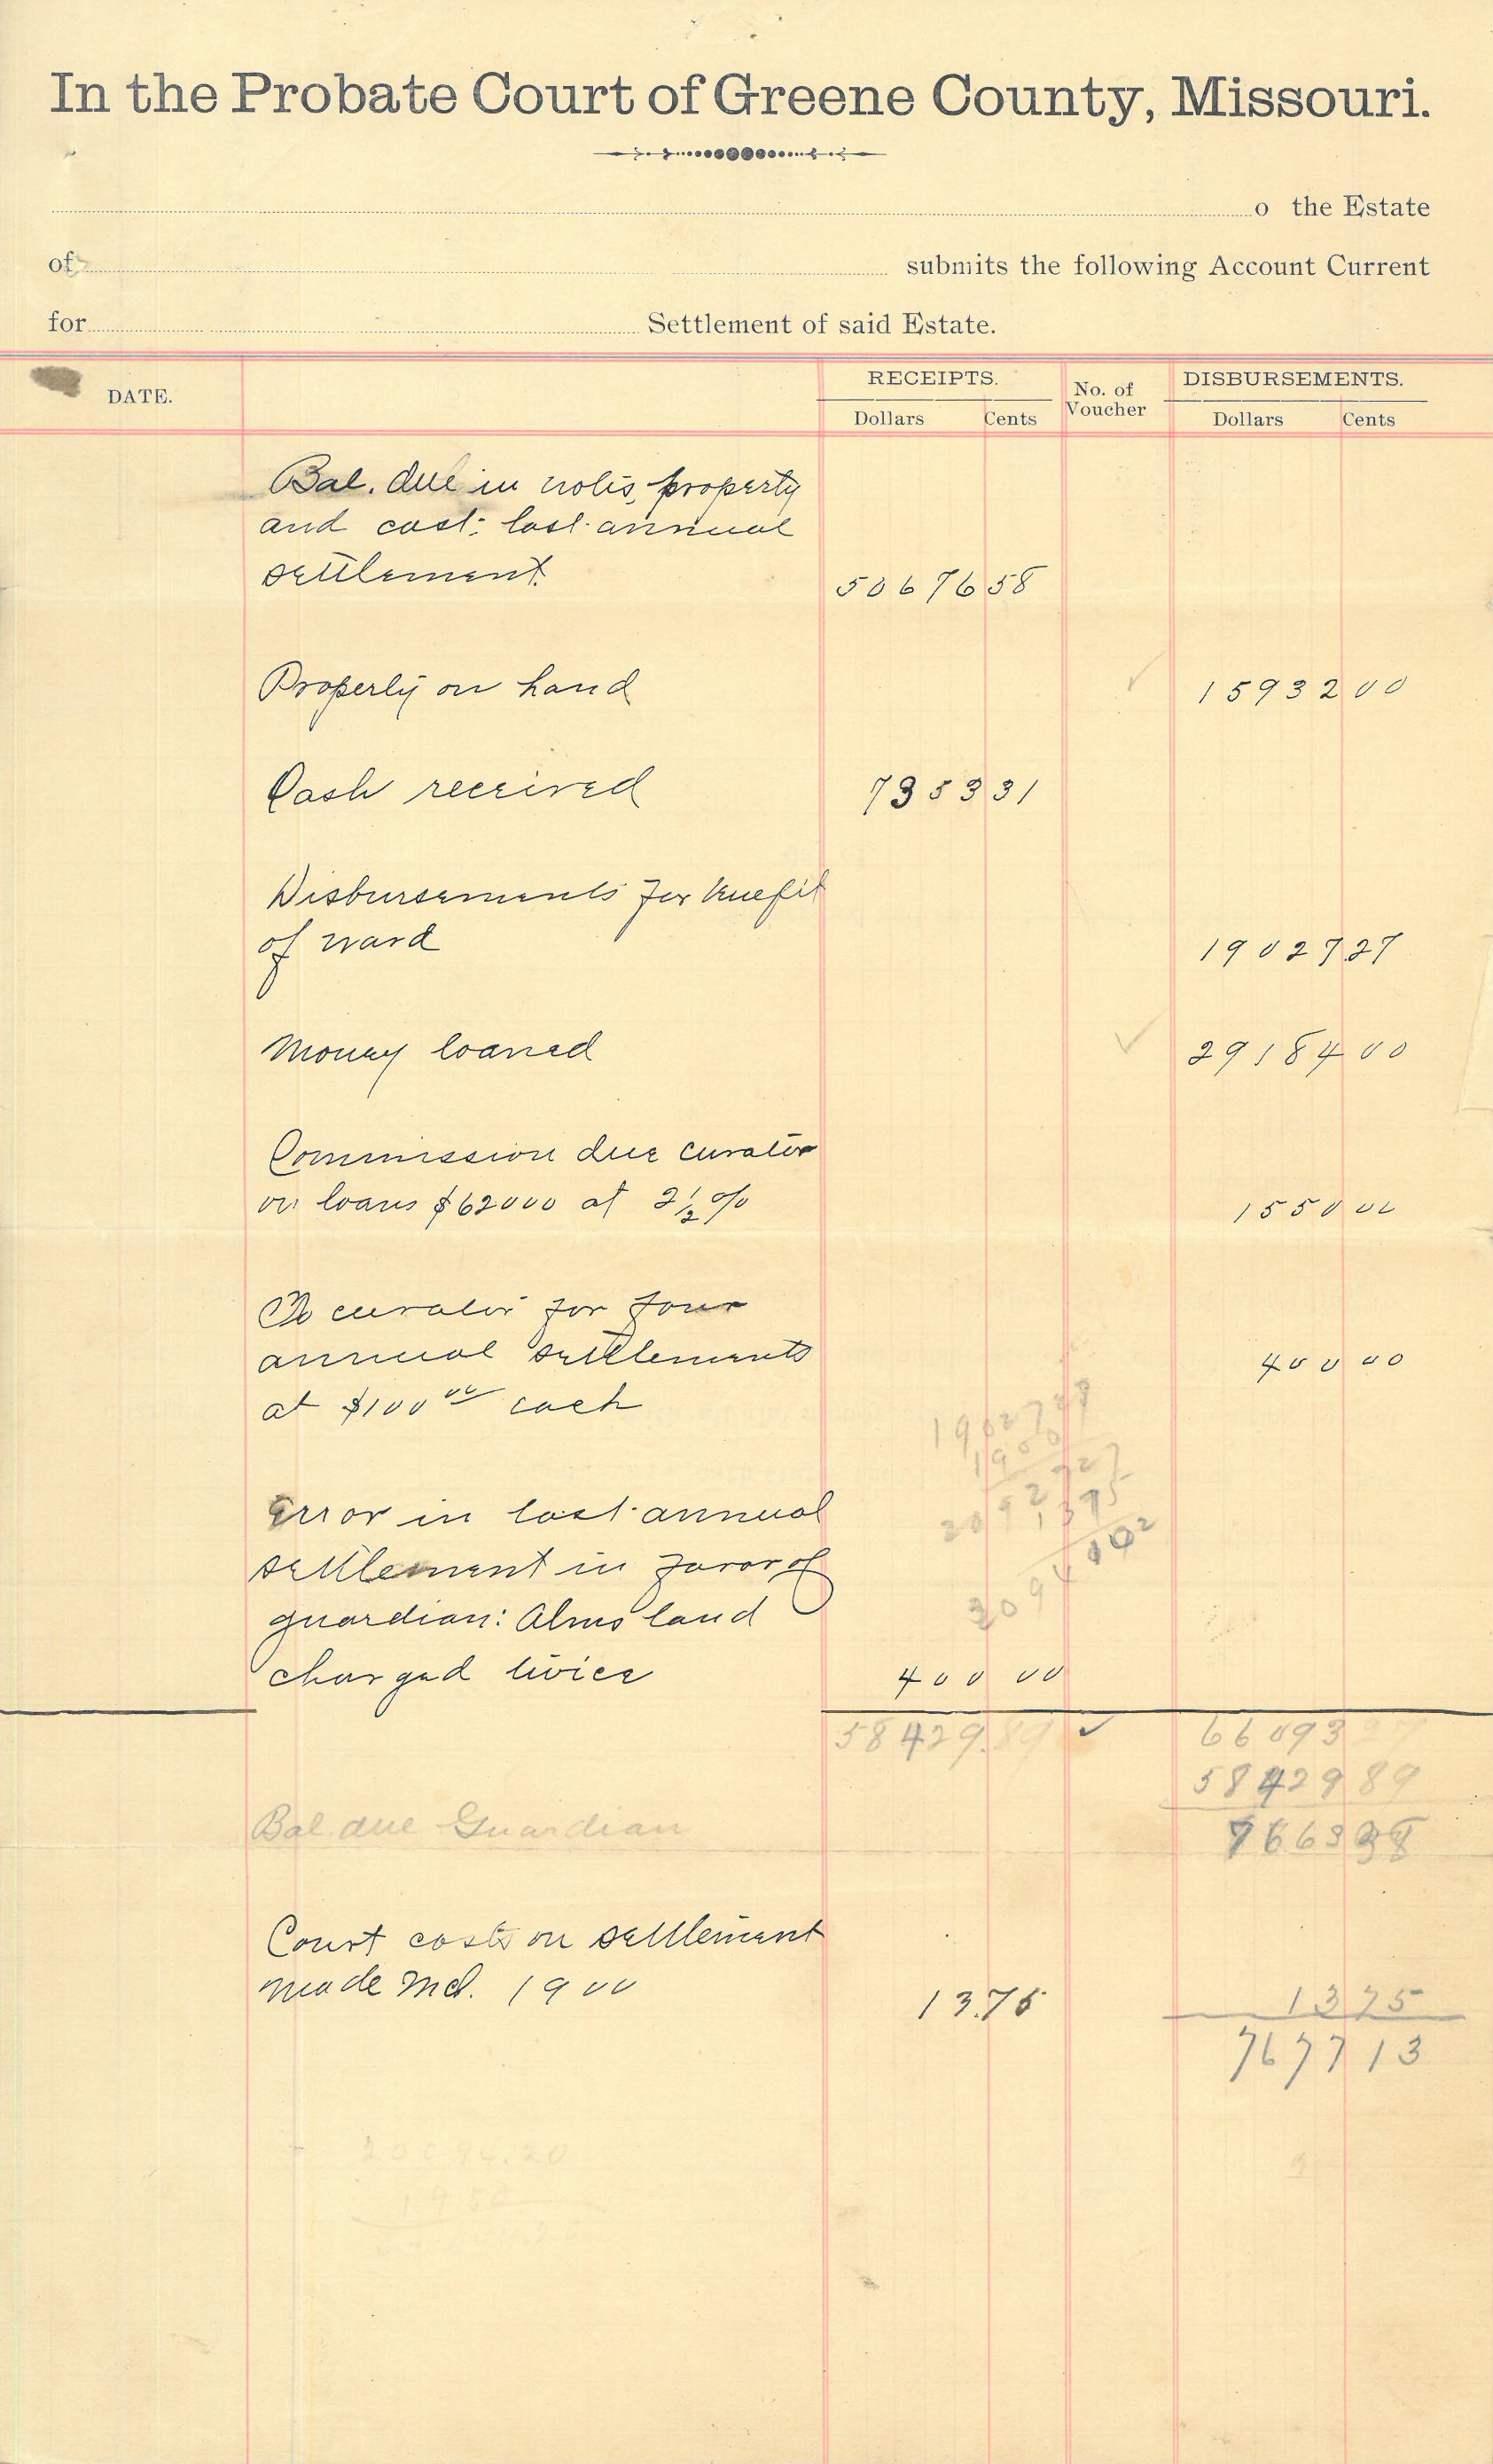 In the Probate Court of Greene County, Missouri.
o the Estate
of submits the following Account Current
for Settlement of said Estate.
DATE. RECEIPTS. No. of Voucher DISBURSEMENTS.
Dollars Cents Dollars Cents
Bal. due in notes, property
and cash: last annual
settlement. 50676 58
Property on hand 15932 00
Cash received 7353 31
Disbursements for benefit
of ward 19027 27
Money loaned ✓ 29184 00
Commission due curator
on loans $62000 at 2½% 1550 00
To curator for four
annual settlements 400 00
at $100 00 each
19027 27
1900
27
Error in last annual
settlement in favor of
guardian: Alms land
charged twice 400 00
58429.89 ✓ 66093 27
58429 89
Bal due Guardian 7663 38
Court costs on settlement
made Mch. 1900 13.75 13 75
7677 13